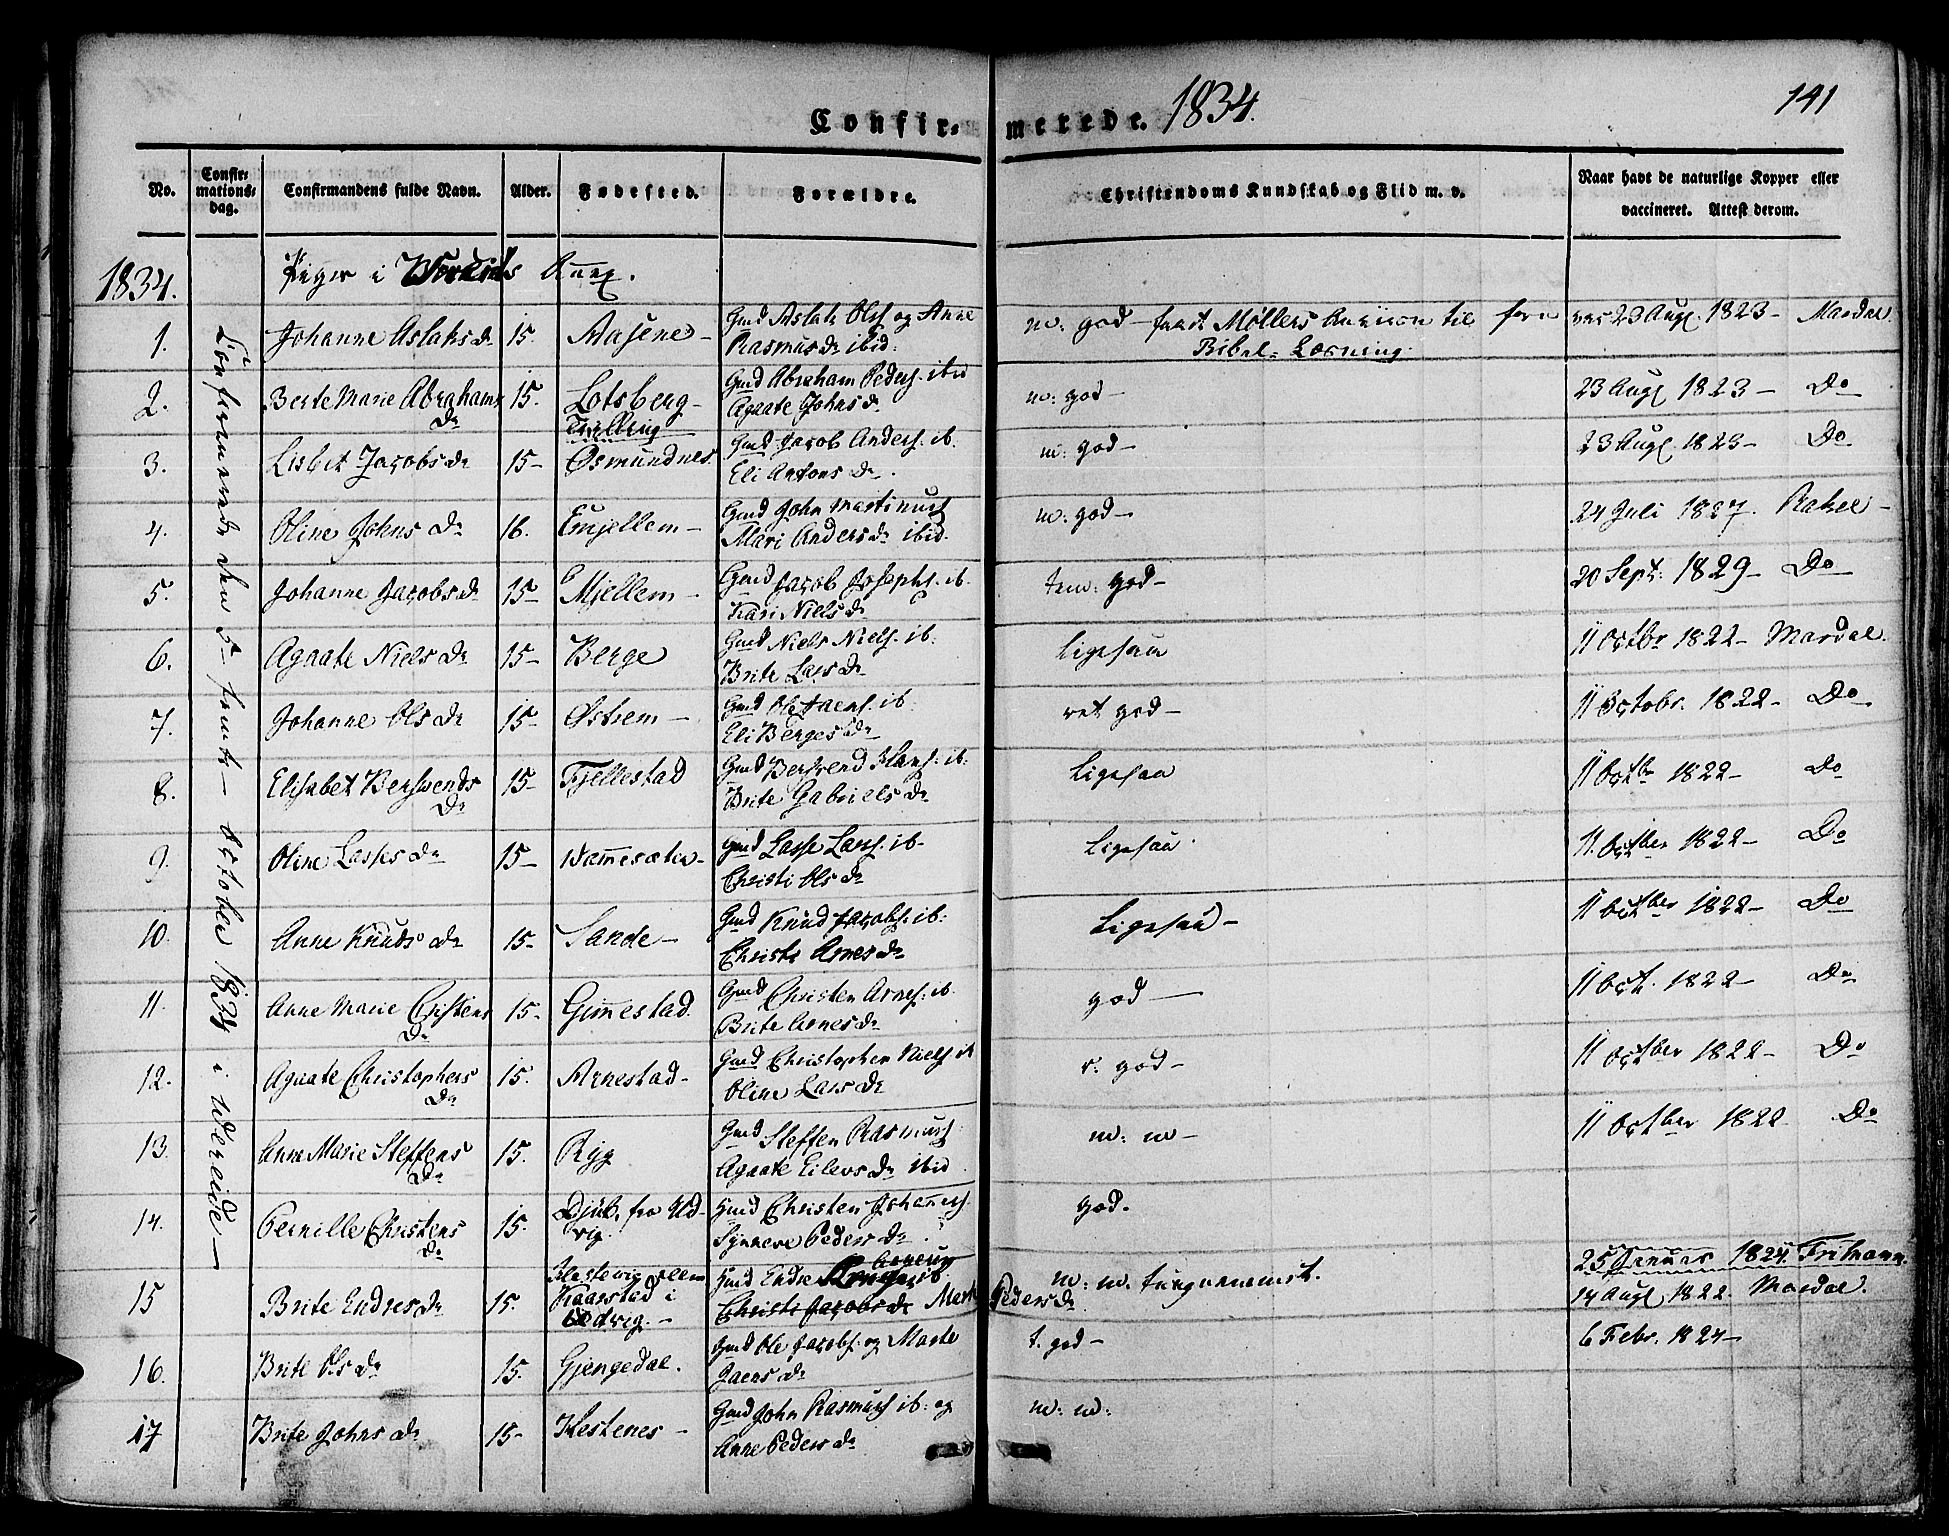 Confir- merede. 1834. 141
No. Confirmations-dag. Confirmandens fulde Navn. Alder. Fødested. Forældre. Christendoms Kundskab og Flid m. v. Naar havt de naturlige Kopper eller vaccineret. Attest derom.
1834. Piger i Annex.
Confirmerede den 5te October 1834 i Wereide
1. Johanne Aslaksdr 15. Aasene Gmd Aslak Ols. og Anne Rasmusdr ibid. m: god Møllers til Bibel-Læsning 23 Aug. 1823 Mardal
2. Berte Marie Abrahamsdr 15. Lotsberg Gmd Abraham Peders. ibid Agaate Johnsdr m: god 23 Aug. 1823 Do
3. Lisbet Jacobsdr 15 Tvilling Osmundnes Gmd Jacob Anders. ib. Eli Antonsdr m: god 23 Aug. 1823 Do
4. Oline Johnsdr 16. Emjellem Gmd John Martinus Mari Andersdr ibid. m: god 24 Juli 1827. Rahel
5. Johanne Jacobsdr 15 Mjellem Gmd Jacob Josephs. ib. Kari Nielsdr tem: god 20 Sept. 1829 Do
6. Agaate Nielsdr 15 Berge Gmd Niels Niels. ib. Brite Larsdr Ligesaa 11 Octbr 1822 Mardal.
7. Johanne Olsdr 15 Østrem Gmd Ole Jaens. ib. Eli Bergesdr ret god 11 Octobr. 1822 Do
8. Elisabet Berswendsdr 15 Fjellestad Gmd Berswend Hans. ib. Brite Gabrielsdr Ligesaa 11 Octbr 1822 Do
9. Oline Lassesdr 15 Gmd Lasse Lars. ib. Christi Olsdr Ligesaa 11. October 1822 Do
10. Anne Knudsdr 15 Sande Gmd Knud Jacobs. ib: Christi Arnesdr Ligesaa 11 October 1822 Do
11. Anne Marie Christensdr 15 Gimmestad Gmd Christen Arnes. ib. Brite Arnesdr god 11 Oct. 1822 Do
12. Agaate Christophersdr 15. Arnestad Gmd Christopher Niels. ib Oline Larsdr r. god 11 October 1822 Do
13. Anne Marie Steffensdr 15. Ryg Gmd Steffen Rasmus. Agaate Eilersdr ibid. m: m 11 October 1822 Do
14. Pernille Christensdr 15. fra Udvig. Gmd Christen Johannes. Synneve Pedersdr god. 25 Januar 1824. Frimann.
15 Brite Endresdr 15. Kaarstad i Udvig. Gmd Endre ib. Christi Jacobsdr Pedersdr m: m. 14 Aug. 1822. Mardal.
16. Brite Olsdr 15. Gjengedal. Gmd Ole Jacobs. og Marte Jaensdr t. god 6 Febr. 1824
17 Brite Johnsdr 15 Hestenes Gmd John Rasmus. ib. og Anne Pedersdr m: m: